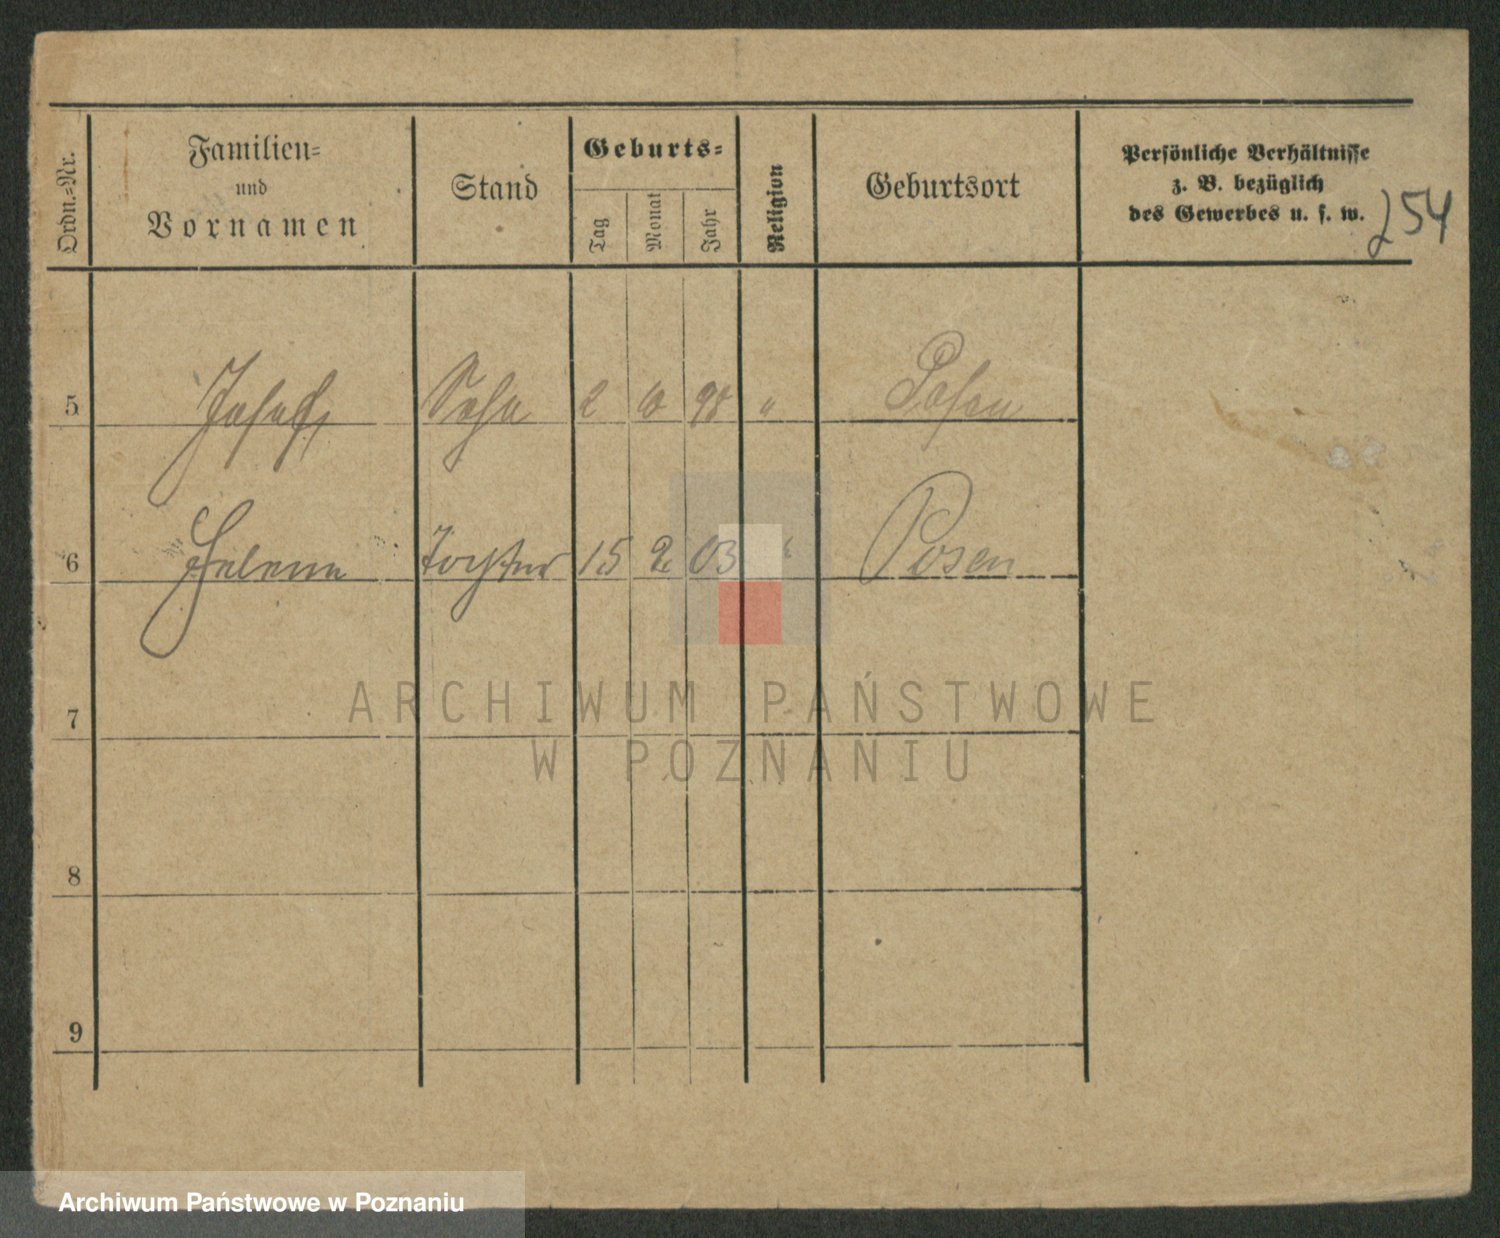 Ordn.-Nr.
Familien-
und
Vornamen
Stand
Geburts-
Tag
Monat
Jahr
Religion
Geburtsort
Persönliche Verhältnisse
z. B. bezüglich
des Gewerbes u. s. w.
254
5 Josef Sohn 98 " Posen
6 Helene Tochter 15 2 03 " Posen
7
8
9
ARCHIWUM PAŃSTWOWE
W POZNANIU
Archiwum Państwowe w Poznaniu